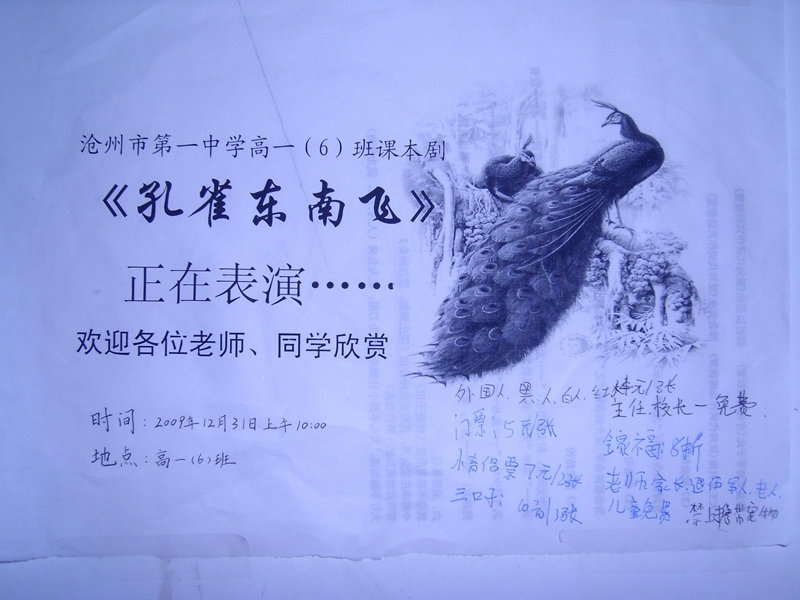 沧州市第一中学高一(6)班课本剧
《孔雀东南飞》
正在表演……
欢迎各位老师、同学欣赏
时间:2009年12月31日上午10:00
地点:高一(6)班
外国人、黑人、白人、红 元/3张
主任校长一免费.
门票:5元/张
情侣票7元/2张
三口子:10元/3张
折
老师家长、退伍军人、老人、
儿童免费
禁止携带宠物